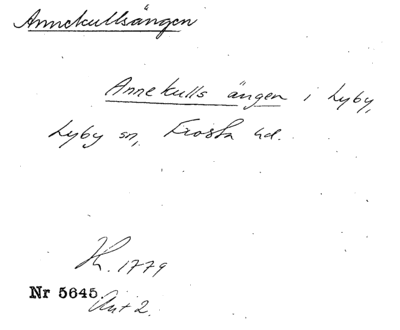 Annekullsängen
Annekulls ängen i Lyby,
Lyby sn, Frosta hd.
Kt. 1779
Nr 5645.
Akt 2.